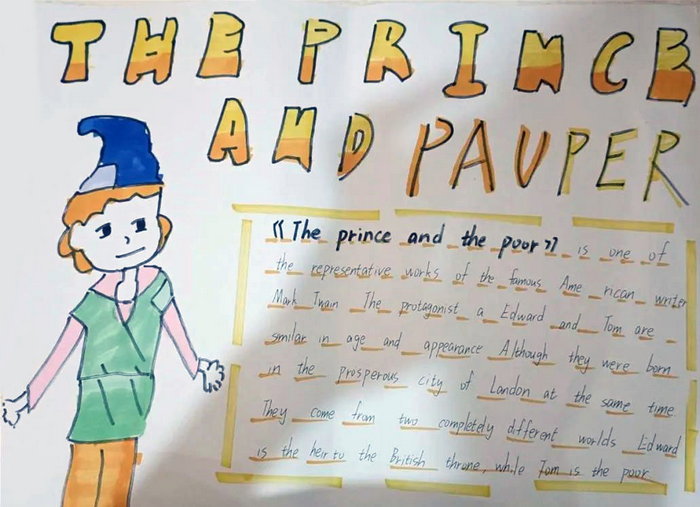 THE PRINCE
AND PAUPER
《The prince and the poor》 is one of
the representative works of the famous Ame rican writer
Mark Twain The protagonist a Edward and Tom are
similar in age and appearance Although they were born
in the prosperous city of London at the same time.
They come from two completely different worlds Edward
is the heir to the British throne, while Tom is the poor